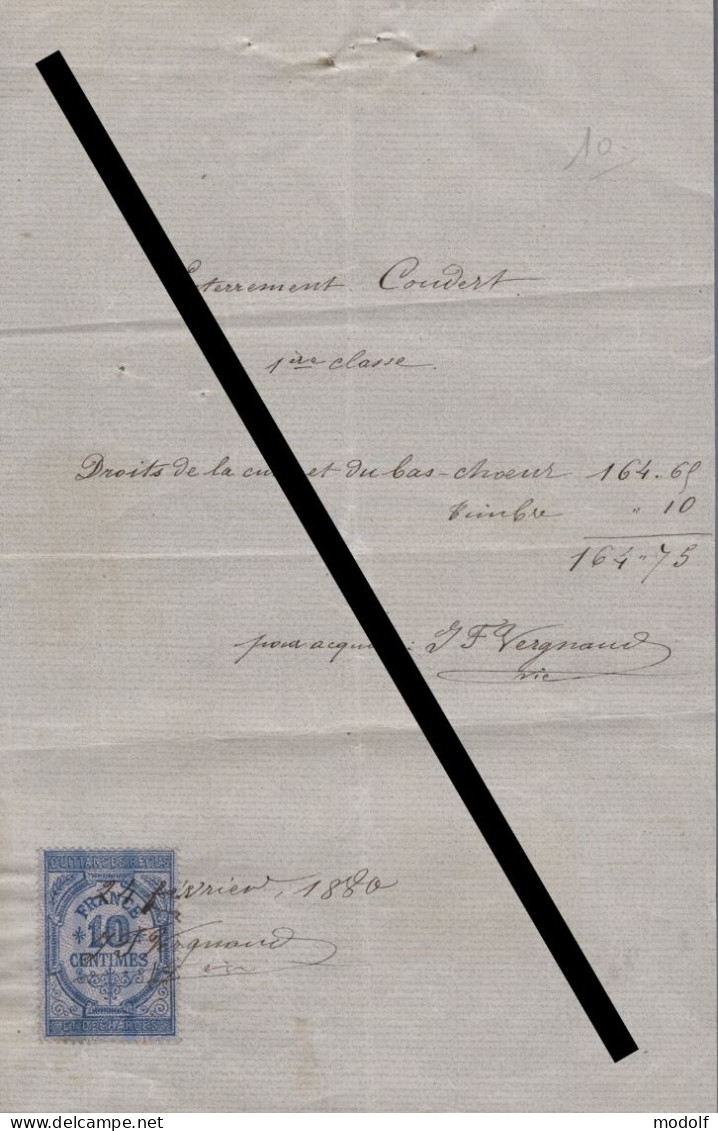 10.
Enterrement Coudert.
1ère classe.
Droits de la cure et du bas-chœur 164.65
timbre " 10
164"75
pour acquit : J F Vergnaud
vic
24 février, 1880
J F Vergnaud
vic
QUITTANCES REÇUS
FRANCE
10
CENTIMES
ET DÉCHARGES
delcampe.net
modolf